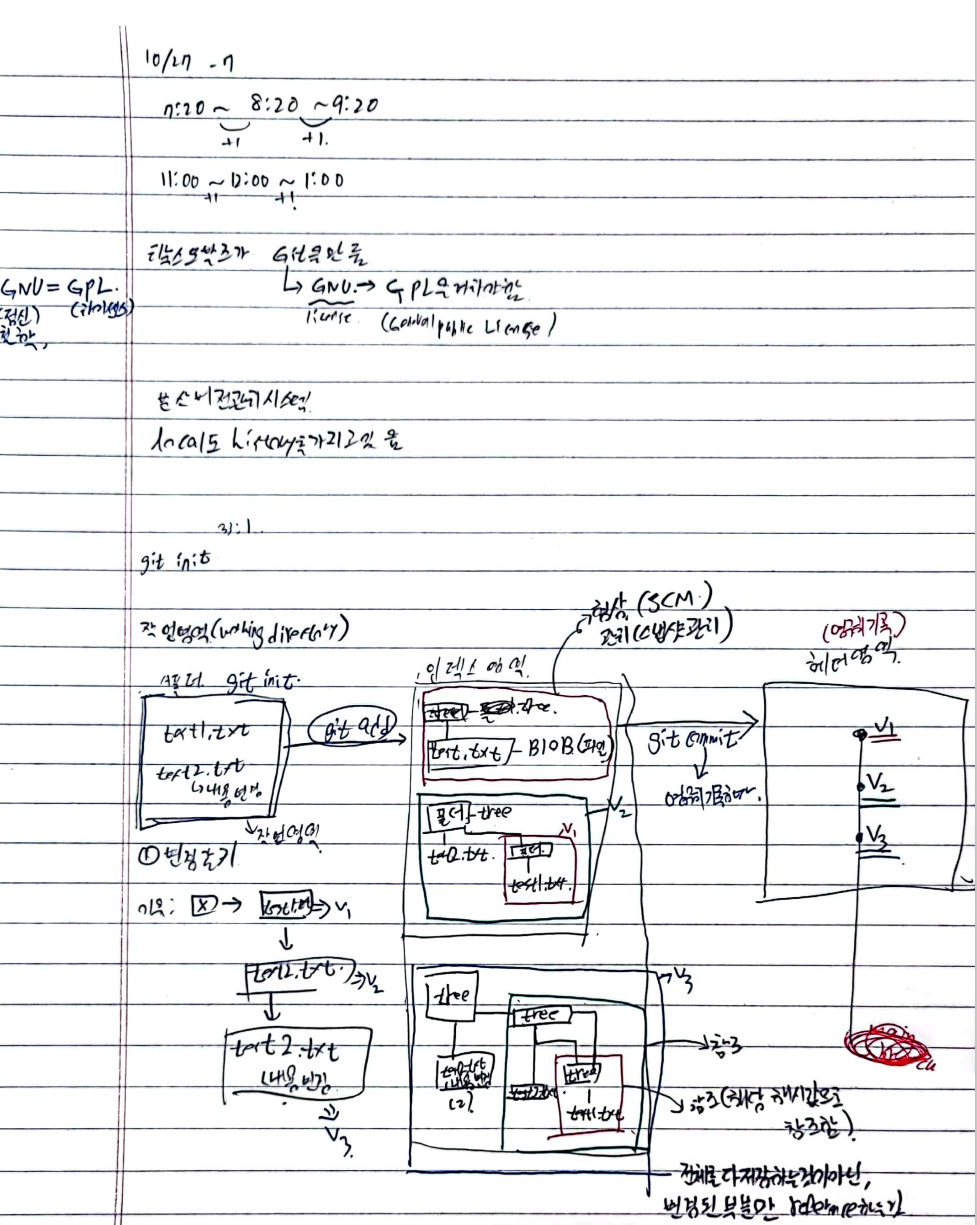 10/27 - 7
7:20 ~ 8:20 ~ 9:20
+1 +1.
11:00 ~ 12:00 ~ 1:00
+1 +1.
리눅스토발즈가 Git을만듦
GNU = GPL.
(정신) (라이센스)
철학,
GNU → GPL을
license. (General public License)
분산버전관리시스템.
local도 history를가지고있음
git init
작업영역(working directory)
형상 (SCM.)
관리(스냅샷관리)
(영구히기록)
헤더영역.
인덱스 영역.
폴더. git init.
text1.txt
text2.txt
↳내용 변경
작업영역
git add
tree.
text.txt - BLOB(파일)
git commit
영구히기록한다.
V1
V2
V3
V2
폴더 - tree
text2.txt.
V1
폴더.
text1.txt.
①변경감지
기록: X → V1
text2.txt. ⇒ V2
text2.txt
(내용변경
⇒
V3
V3
tree
tree
text2.txt
(내용변경
(2)
text2.txt
tree
text1.txt
참조
참조(해당 해시값으로
참조함)
전체를 다 저장하는것이아닌,
변경된 부분만 reference하는것